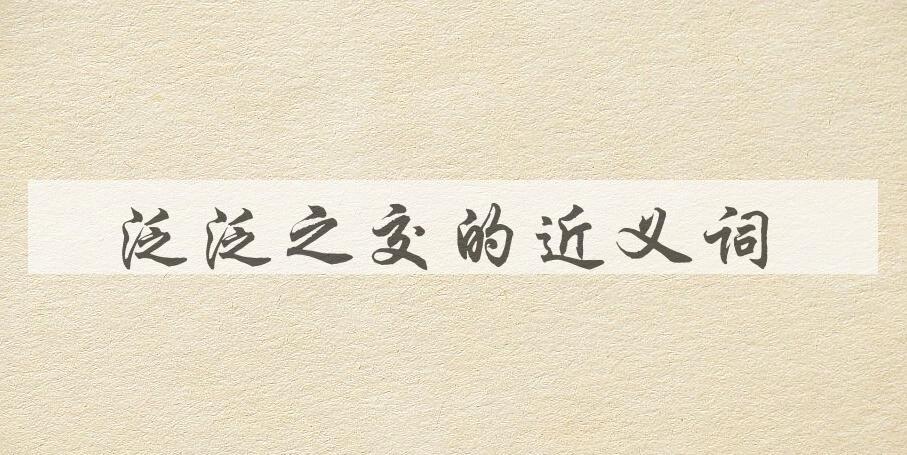 泛泛之交的近义词